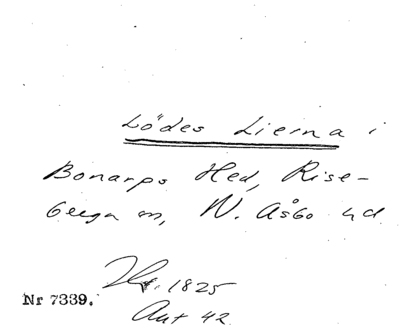 Lödes Lierna i
Bonarps Hed, Rise-
berga sn, N. Åsbo hd.
1825
Nr 7339.
Aut 42